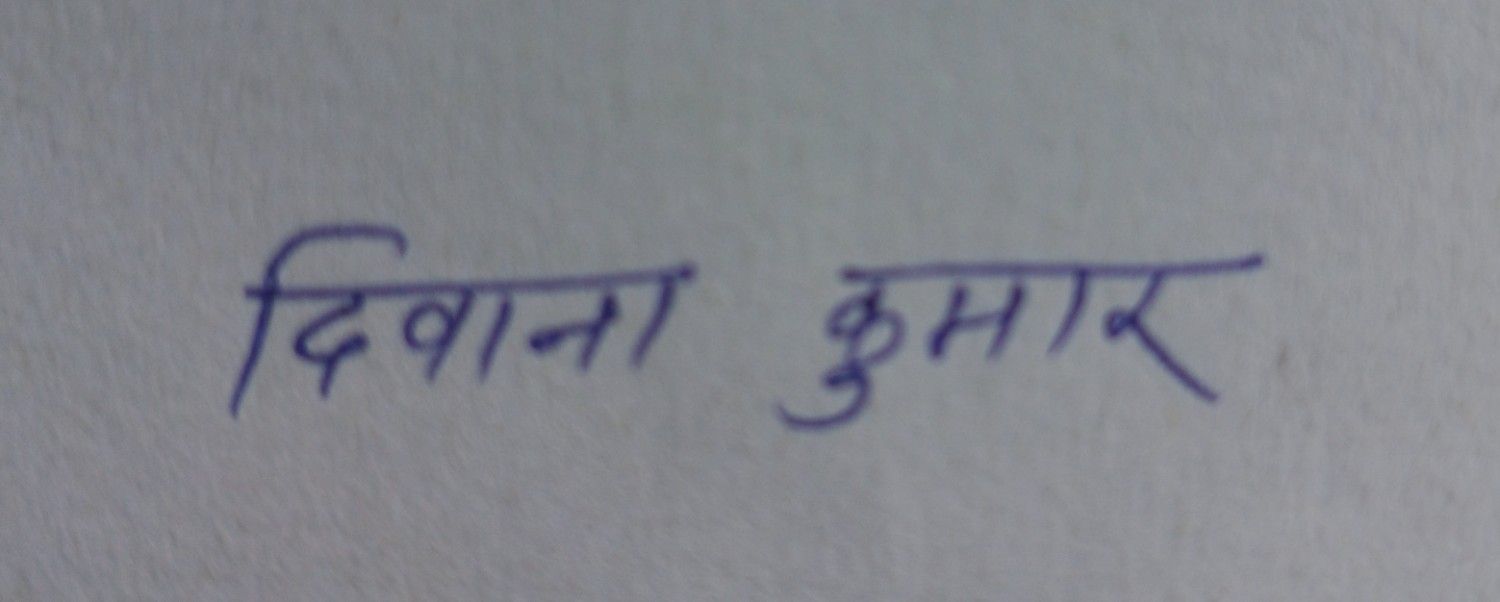 दिवाना कुमार